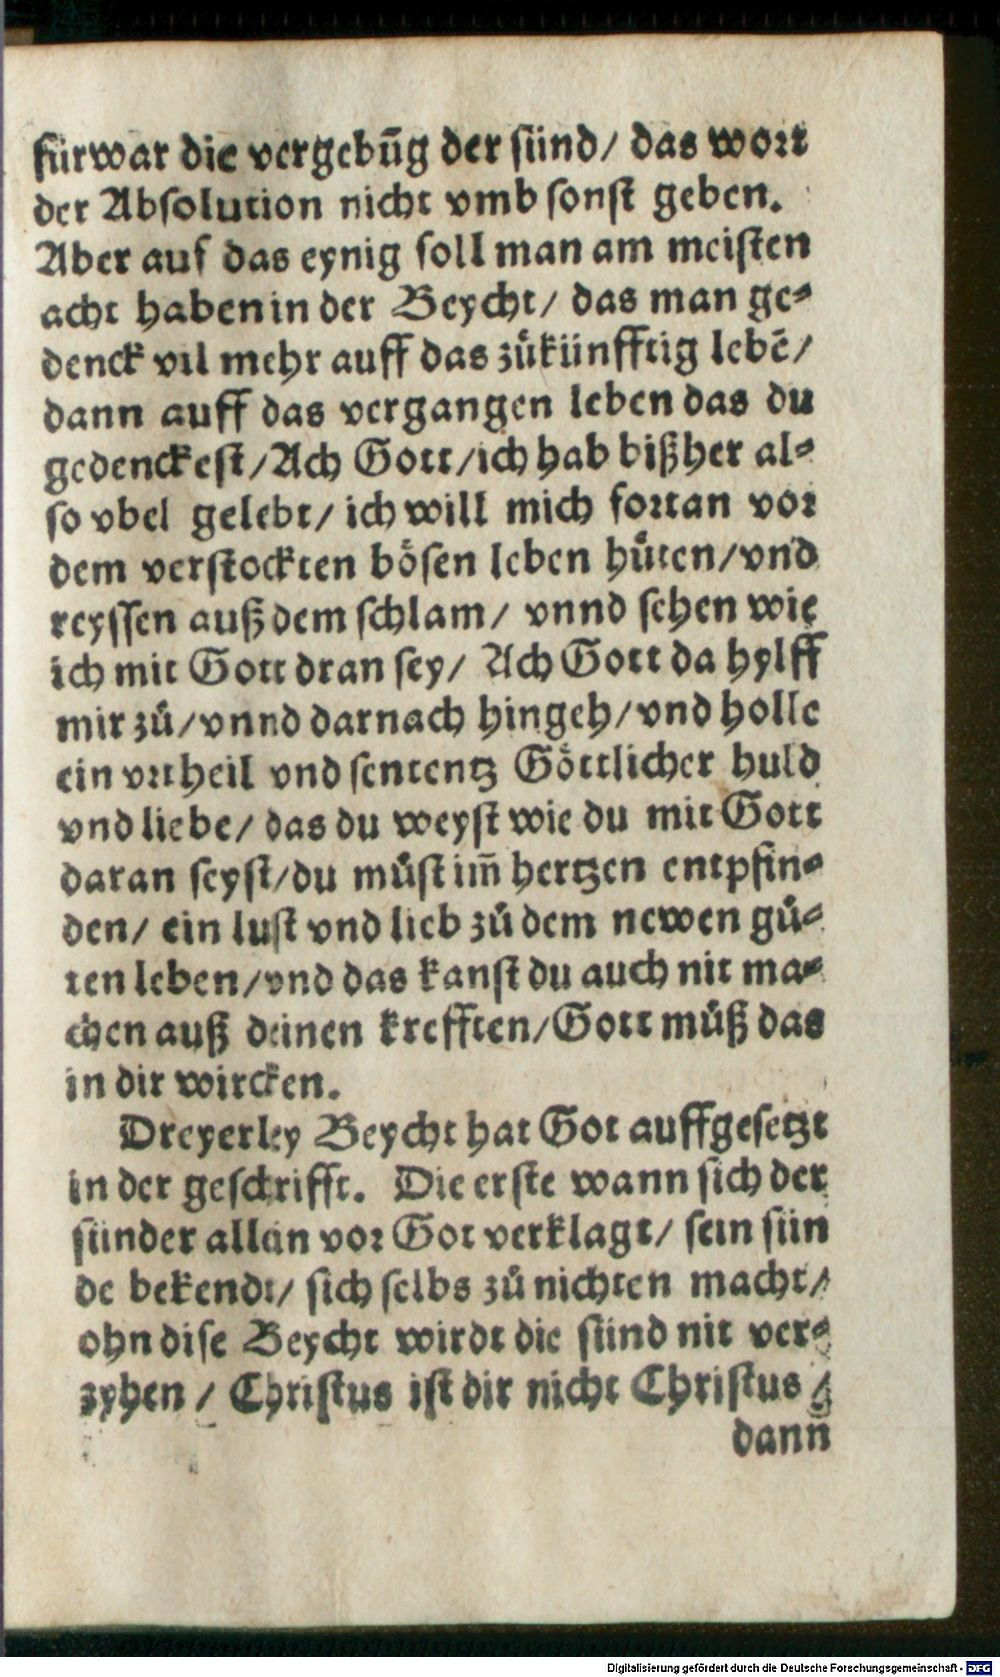 fürwar die vergebūg der sünd/ das wort
der Absolution nicht vmb sonst geben.
Aber auf das eynig soll man am meisten
acht haben in der Beycht/ das man ge-
denck vil mehr auff das zůkünfftig lebē/
dann auff das vergangen leben das du
gedenckest/Ach Gott/ich hab bißher al-
so vbel gelebt/ ich will mich fortan vor
dem verstockten bösen leben hůten/vnd
reyssen auß dem schlam/ vnnd sehen wie
ich mit Gott dran sey/ Ach Gott da hylff
mir zů/vnnd darnach hingeh/vnd holle
ein vrtheil vnd sententz Göttlicher huld
vnd liebe/ das du weyst wie du mit Gott
daran seyst/du můst im̄ hertzen entpfin-
den/ ein lust vnd lieb zů dem newen gů-
ten leben/vnd das kanst du auch nit ma-
chen auß deinen krefften/Gott můß das
in dir wircken.
Dreyerley Beycht hat Got auffgesetzt
in der geschrifft. Die erste wann sich der
sünder allein vor Got verklagt/ sein sün
de bekendt/ sich selbs zů nichten macht/
ohn dise Beycht wirdt die sünd nit ver-
zyhen / Christus ist dir nicht Christus /
dann
Digitalisierung gefördert durch die Deutsche Forschungsgemeinschaft - DFG